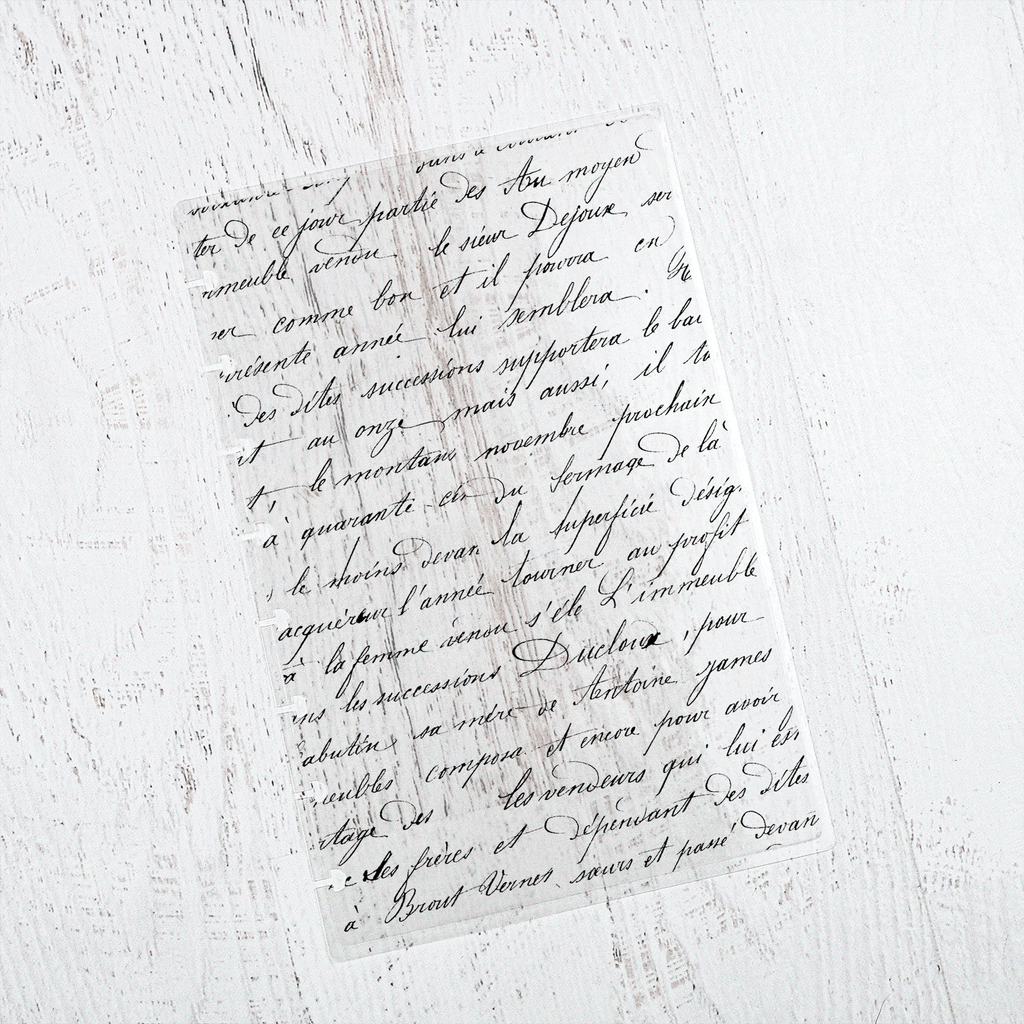 ter de ce jour partie des Au moyen
meuble vendu le sieur Dejoux ser
er comme bon et il pourra en
résente année lui semblera. Gr
Des dites successions supportera le bai
it au onze mais aussi, il to
t, le montant novembre prochain
à quarante cin du fermage de là
, le moins devan la superficié désig.
acquéreur l'année tourner au profit
à la femme venou s'éle L'immeuble
ns les successions Ducloux, pour
abutin sa mère de Antoine james
eubles composa et encore pour avoir
tage des les vendeurs qui lui est
les frères et dépendant des dites
à Brout Vernet sœurs et passé devan